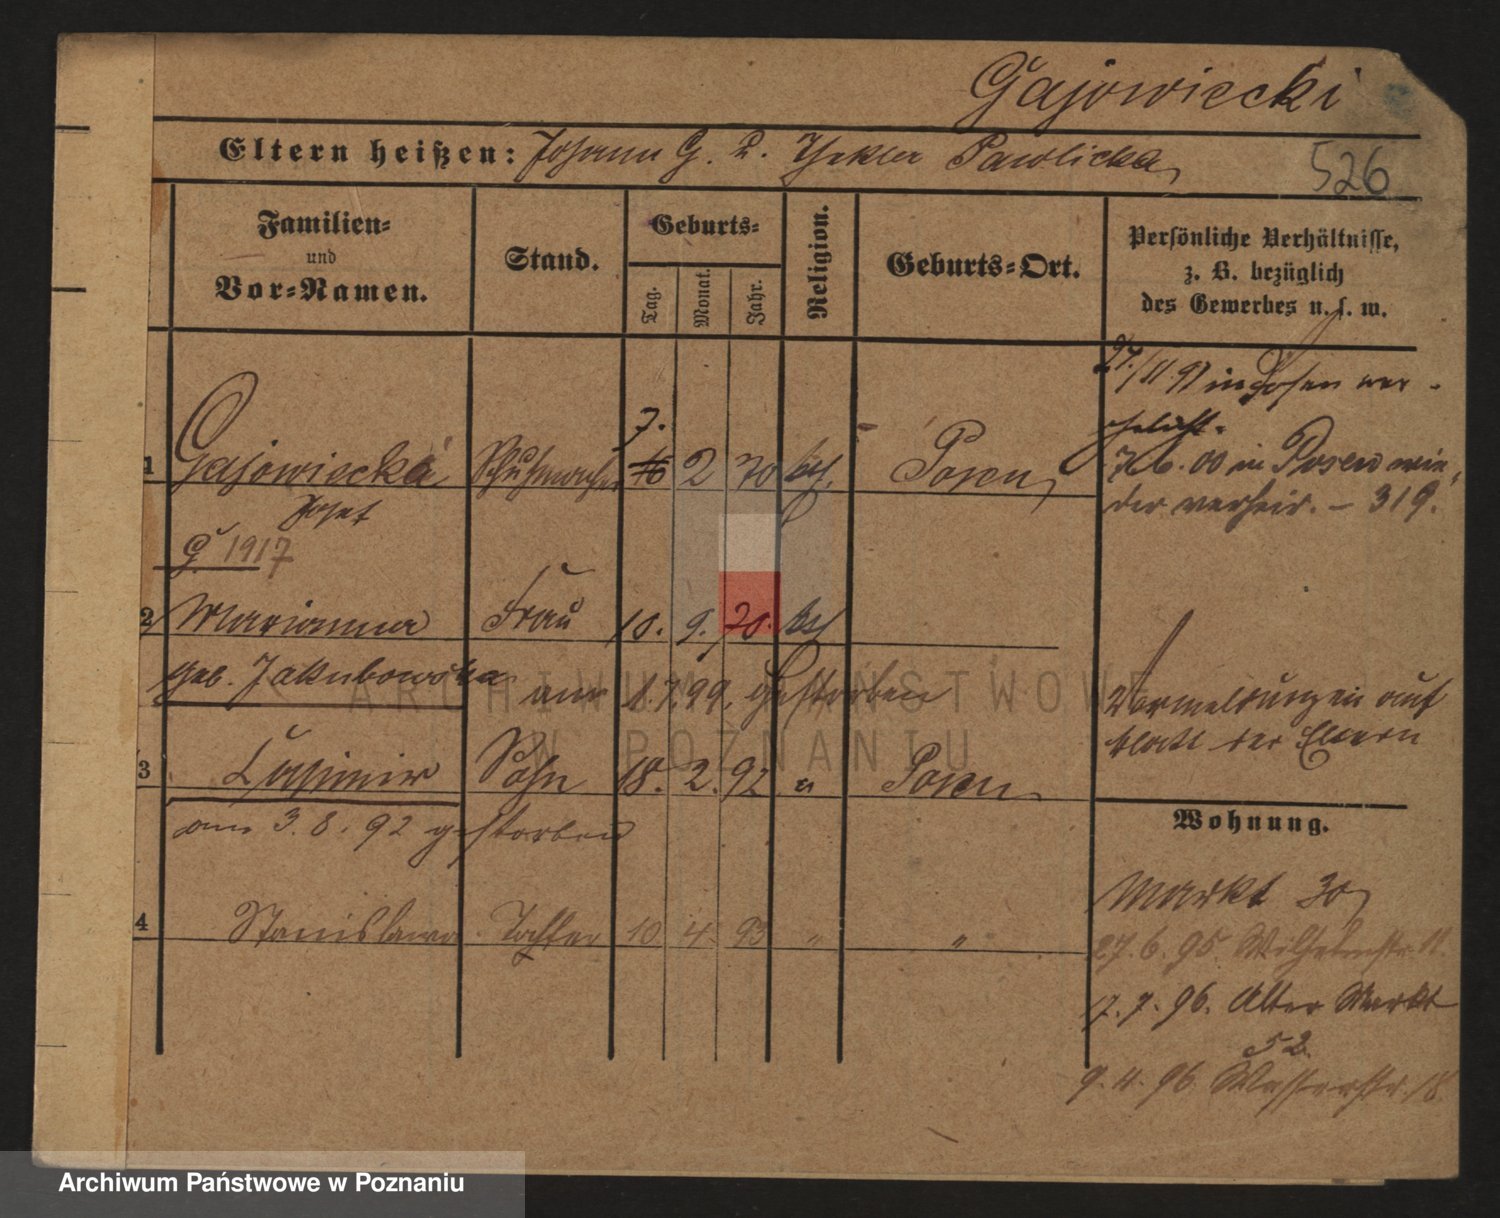 Gajowiecki
Eltern heißen: Johann G. u. Thekla Pawlicka
526
Familien= und Vor=Namen.
Stand.
Geburts=
Tag.
Monat.
Jahr.
Religion.
Geburts=Ort.
Persönliche Verhältnisse,
z. B. bezüglich
des Gewerbes u. s. w.
27./11 91 in Posen ver-
ehelicht.
1 Gajowiecki Schuhmacher 7. 2 70 kth. Posen
Josef
7.6.00 in Posen wie-
der verheir. – 319.
G 1917
2 Marianna Frau 10. 9. 70. kth
geb. Jakubowska am 8.7.99. gestorben
Vormeldungen auf
blatt der Eltern
3 Casimir Sohn 18. 2. 92 " Posen
am 3.8.92 gestorben
Wohnung.
Markt 30
4 Stanislawa Tochter 10 4. 93 " "
27.6.95. Wilhelmstr. 11.
7.7.96. Alter Markt
52.
9.11.96. Wasserstr. 18.
ARCHIWUM PAŃSTWOWE
W POZNANIU
Archiwum Państwowe w Poznaniu